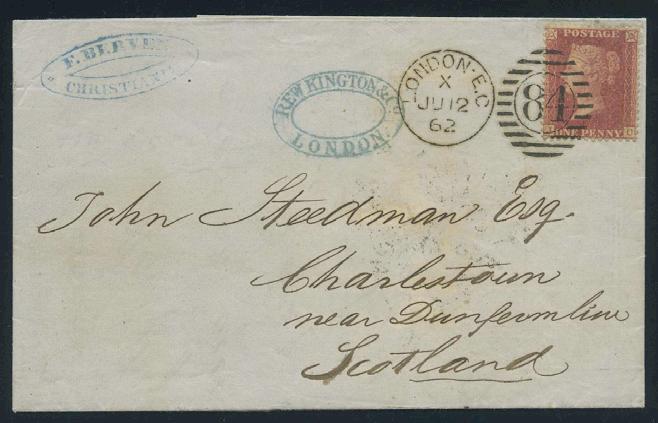 F. BERVEN
CHRISTIANIA
REW KINGTON & Co
LONDON
LONDON·E.C
X
JU 12
62
84
POSTAGE
ONE PENNY
John Steedman Esq.
Charlestown
near Dunfermline
Scotland